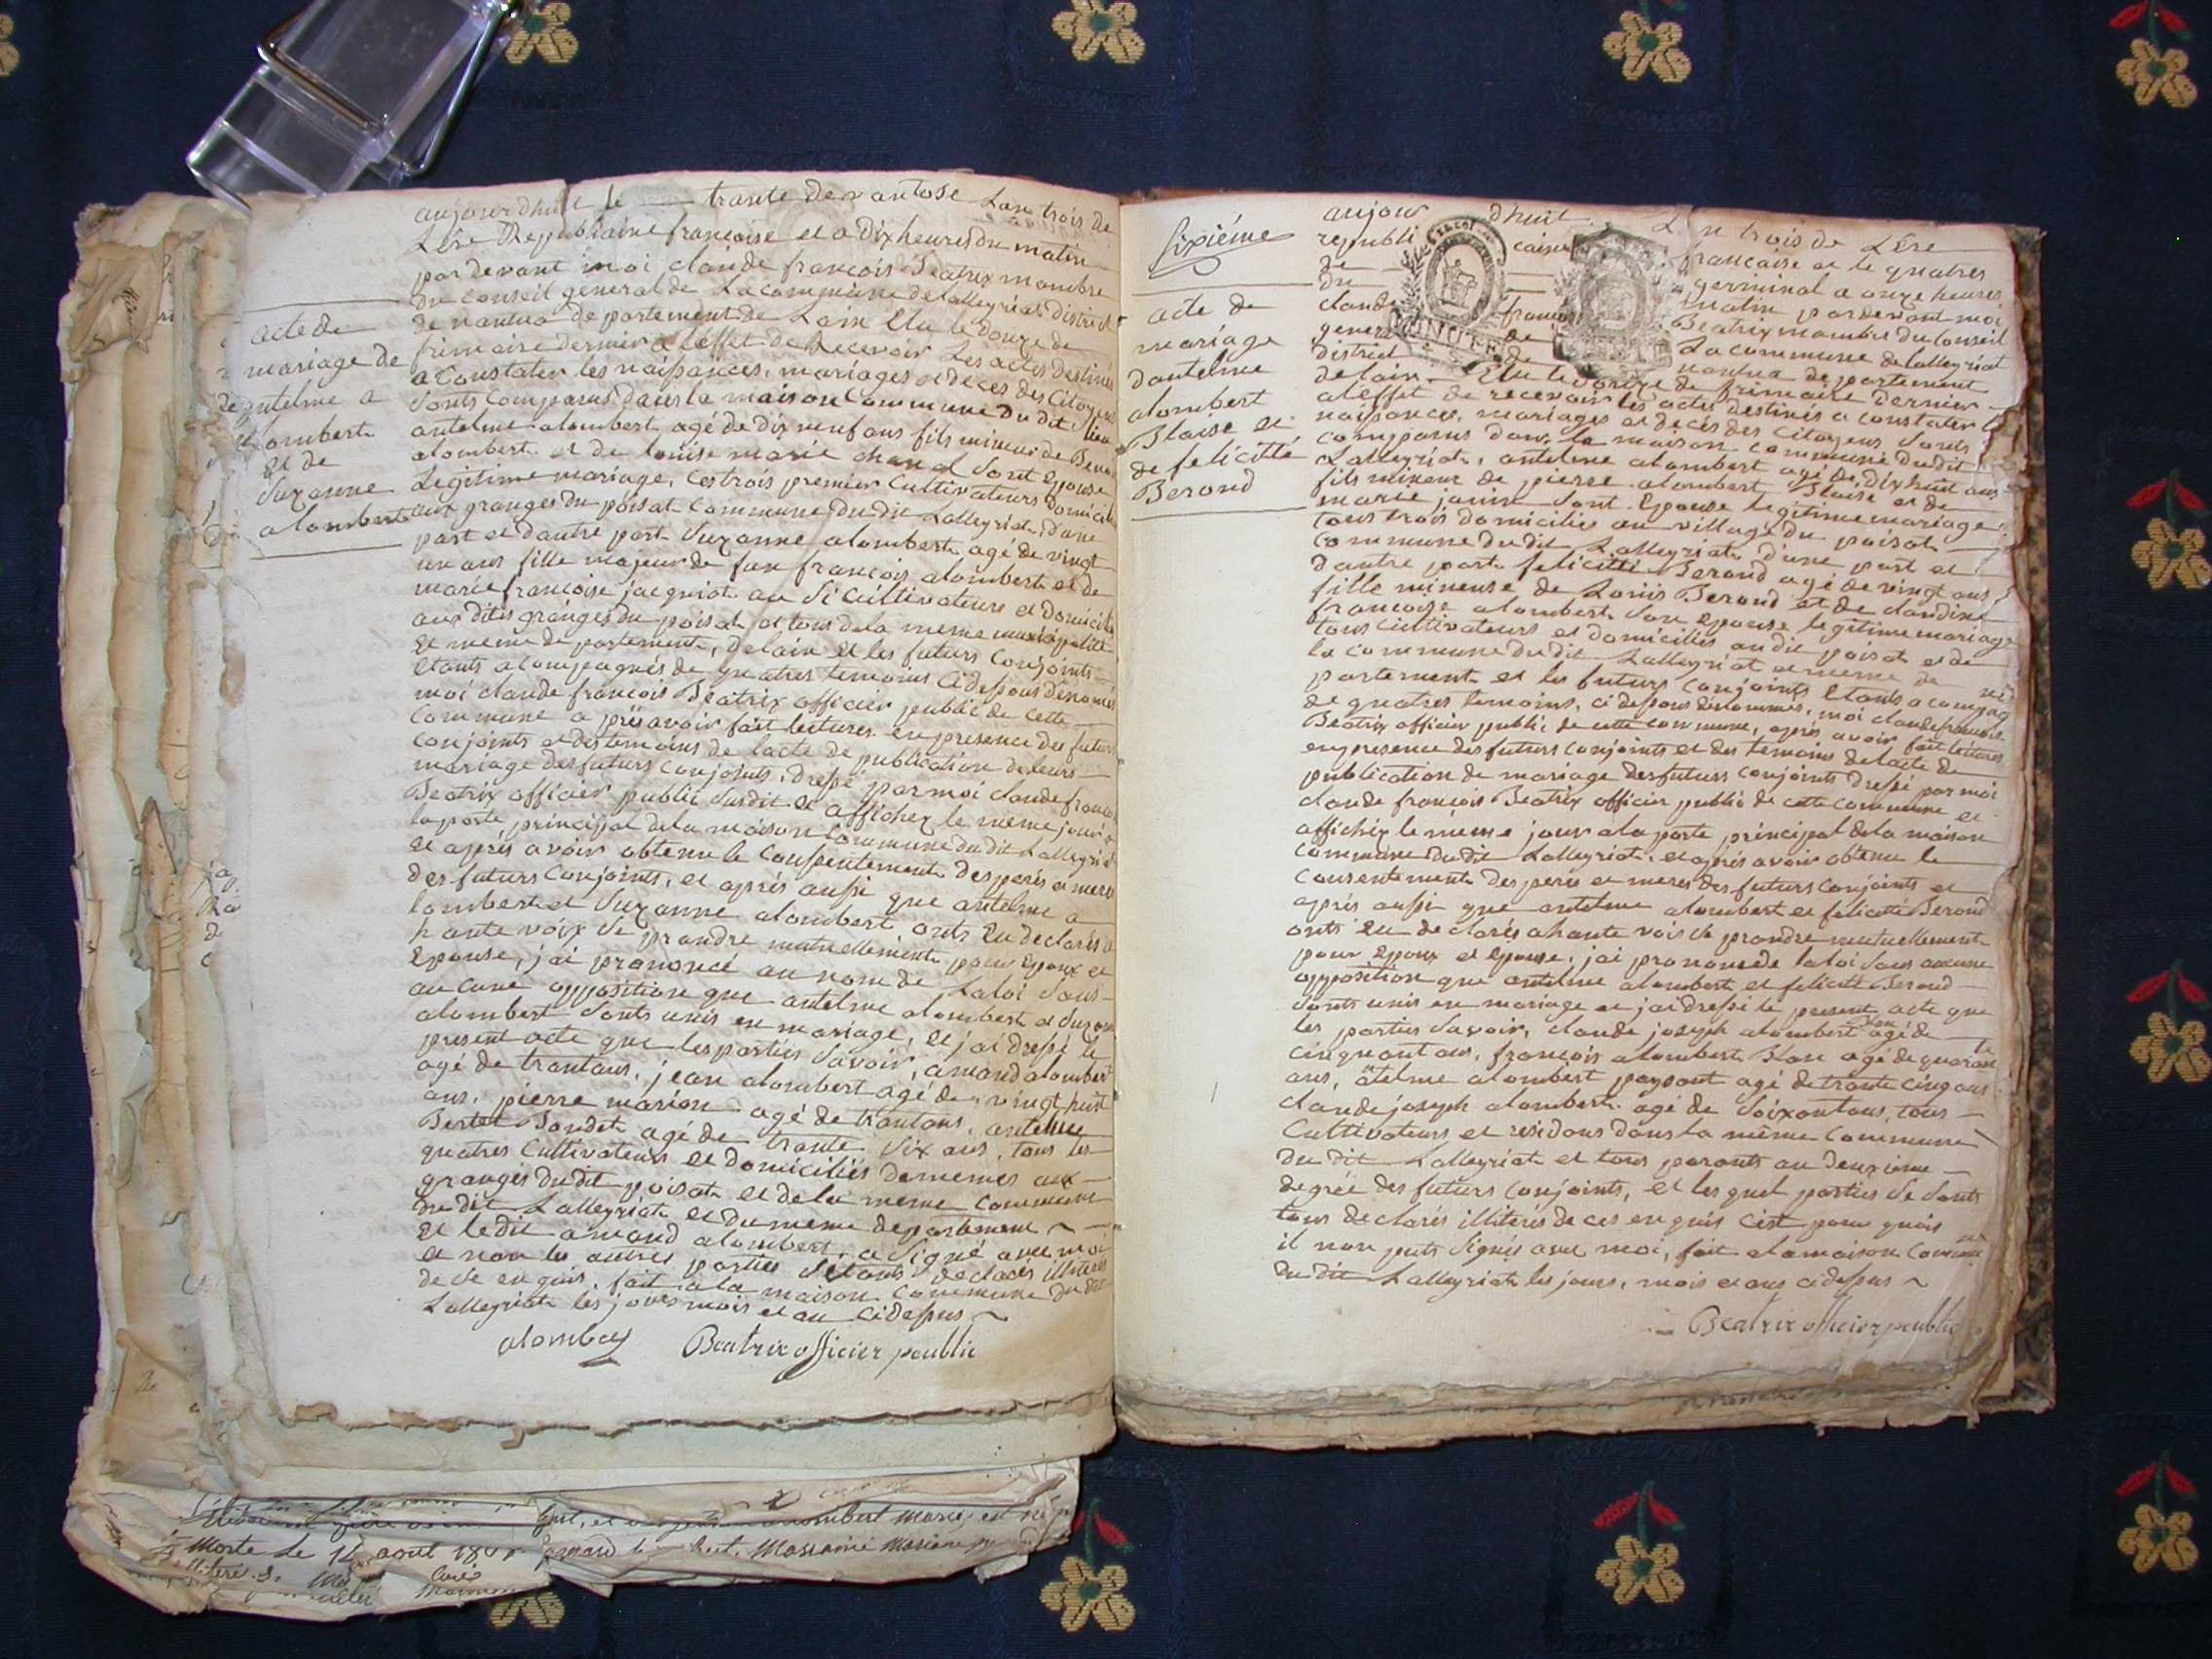 acte de
mariage de
dantelme a
lombert
et de
Suzanne
alombert
aujourdhuit le trante de vantose Lan trois de
Lere Republicaine francoise et a dix heures du matin
par devant moi claude francois Beatrix mambre
du Conseil general de La commune de lalleyriat district
de nantua de partement de Lain Elu le douze de
frimaire dernier a leffet de Recevoir Les actes destines
a Constater les naissances, mariages et deces des Citoyens
sonts Comparus dans la maison Commune du dit lieu
antelme alombert agé de dix neuf ans fils mineur de
alombert et de louise marie chanel sont epouse
Legitime mariage, Ces trois premier Cultivateurs domicilies
aux granges du poisat Commune du dit Lalleyriat, dune
part et dautre part Suzanne alombert agé de vingt
un ans fille majeur de feu francois alombert et de
marie francoise jacquiot au si Cultivateurs et domicilies
aux dites granges du poisat et tous de la meme municipalité
et meme de partement, de lain et les futurs Conjoints
etants acompagnés de quatres temoins Ci dessous denomés
moi claude francois Beatrix officier public de cette
Commune a prés avoir fait lectures en presence des futurs
Conjoints et des temoins de lacte de publication de leurs
mariage des futurs conjoints, dressé par moi claude francois
Beatrix officier public Susdit et affichez le meme jour a
la porte principal de la maison Commune du dit Lalleyriat
et aprés avoir obtenu le Consentement des perés et meres
des futurs Conjoints, et aprés aussi que antelme a
lombert et Suzanne alombert onts eu declarés a
haute voix se prandre mutuellement pour epoux et
Epouse, jai prononcé au nom de Laloi Sans
aucune opposition que antelme alombert et Suzanne
alombert Sonts unis en mariage, et jai dressé le
present acte que les parties Savoir, amand alombert
agé de trantans, jean alombert agé de vingt huit
ans, pierre marion agé de trantans, antelme
Bertet Soudet agé de trante Six ans, tous les
quatres Cultivateurs et domiciliés de memes aux
granges du dit poisat et de la meme Commune
du dit Lalleyriat et du meme departement
et le dit amand alombert a Signé avec moi
et non les autres parties Setants declarés illiterés
de ce enquis, fait a la maison Commune du dit
Lalleyriat les jours mois et an Cidessus
alombert Beatrix officier peublic
Sixiéme
acte de
mariage
dantelme
alombert
Blaise et
de felicitté
Berond
aujour dhuit Lan trois de Lére
republi caine francaise et le quatres
de germinal a onze heures
du matin par devant moi
claude francois Beatrix mambre du Conseil
general de La commune de lalleyriat
district de nantua departement
de lain Elu le douze de frimaire dernier
a leffet de recevoir les actes destinés a constater
naissances, mariages et decés des Citoyens sonts
comparus dans la maison commune du dit
Lalleyriat, antelme alombert agé de dix huit ans
fils mineur de pierre alombert Blaise et de
marie janin sont Epouse legitime mariage
tous trois domiciliés au village du poisat
commune du dit Lalleyriat d'une part et
dautre part felicitté Berond agé de vingt ans
fille mineuse de Louis Berond et de claudine
francoise alombert son epouse legitime mariage
tous cultivateurs et domiciliés au dit poisat et de
la commune du dit Lalleyriat et meme de
partement et les futurs Conjoints etants acompag nés
de quatres temoins, ci dessous dénommés, moi claude francois
Beatrix officier public de cette commune, aprés avoir fait lectures
en presence des futurs conjoints et des temoins de lacte de
publication de mariage des futurs conjoints dressé par moi
claude francois Beatrix officier public de cette commune et
affichéz le méme jour a la porte principal de la maison
commune du dit Lalleyriat, et aprés avoir obtenu le
consentement des peres et meres des futurs conjoints et
aprés aussi que antelme alombert et felicitté Berond
onts eu declarés a haute vois se prandre mutuellement
pour epoux et epouse, jai prononcé de la loi sans aucune
opposition que antelme alombert et felicité Berond
Sonts unis en mariage et jai dressé le present acte que
les parties Savoir, claude joseph alombert agé de
cinquant ans, francois alombert Blan agé de quarante
ans, antelme alombert paysant agé de trante cinq ans
claude joseph alombert agé de Soixantans, tous
Cultivateurs et residans dans la même Commune
du dit Lalleyriat et tous parants au deuxieme
degrée des futurs conjoints, et les quel parties se sonts
tous declarés illiterés de ces enquis cest pour quois
il non puts Signés avec moi, fait a la maison Commune
du dit Lalleyriat les jours, mois et ans cidessus
Beatrix officier peublic
Morte le 14 aout